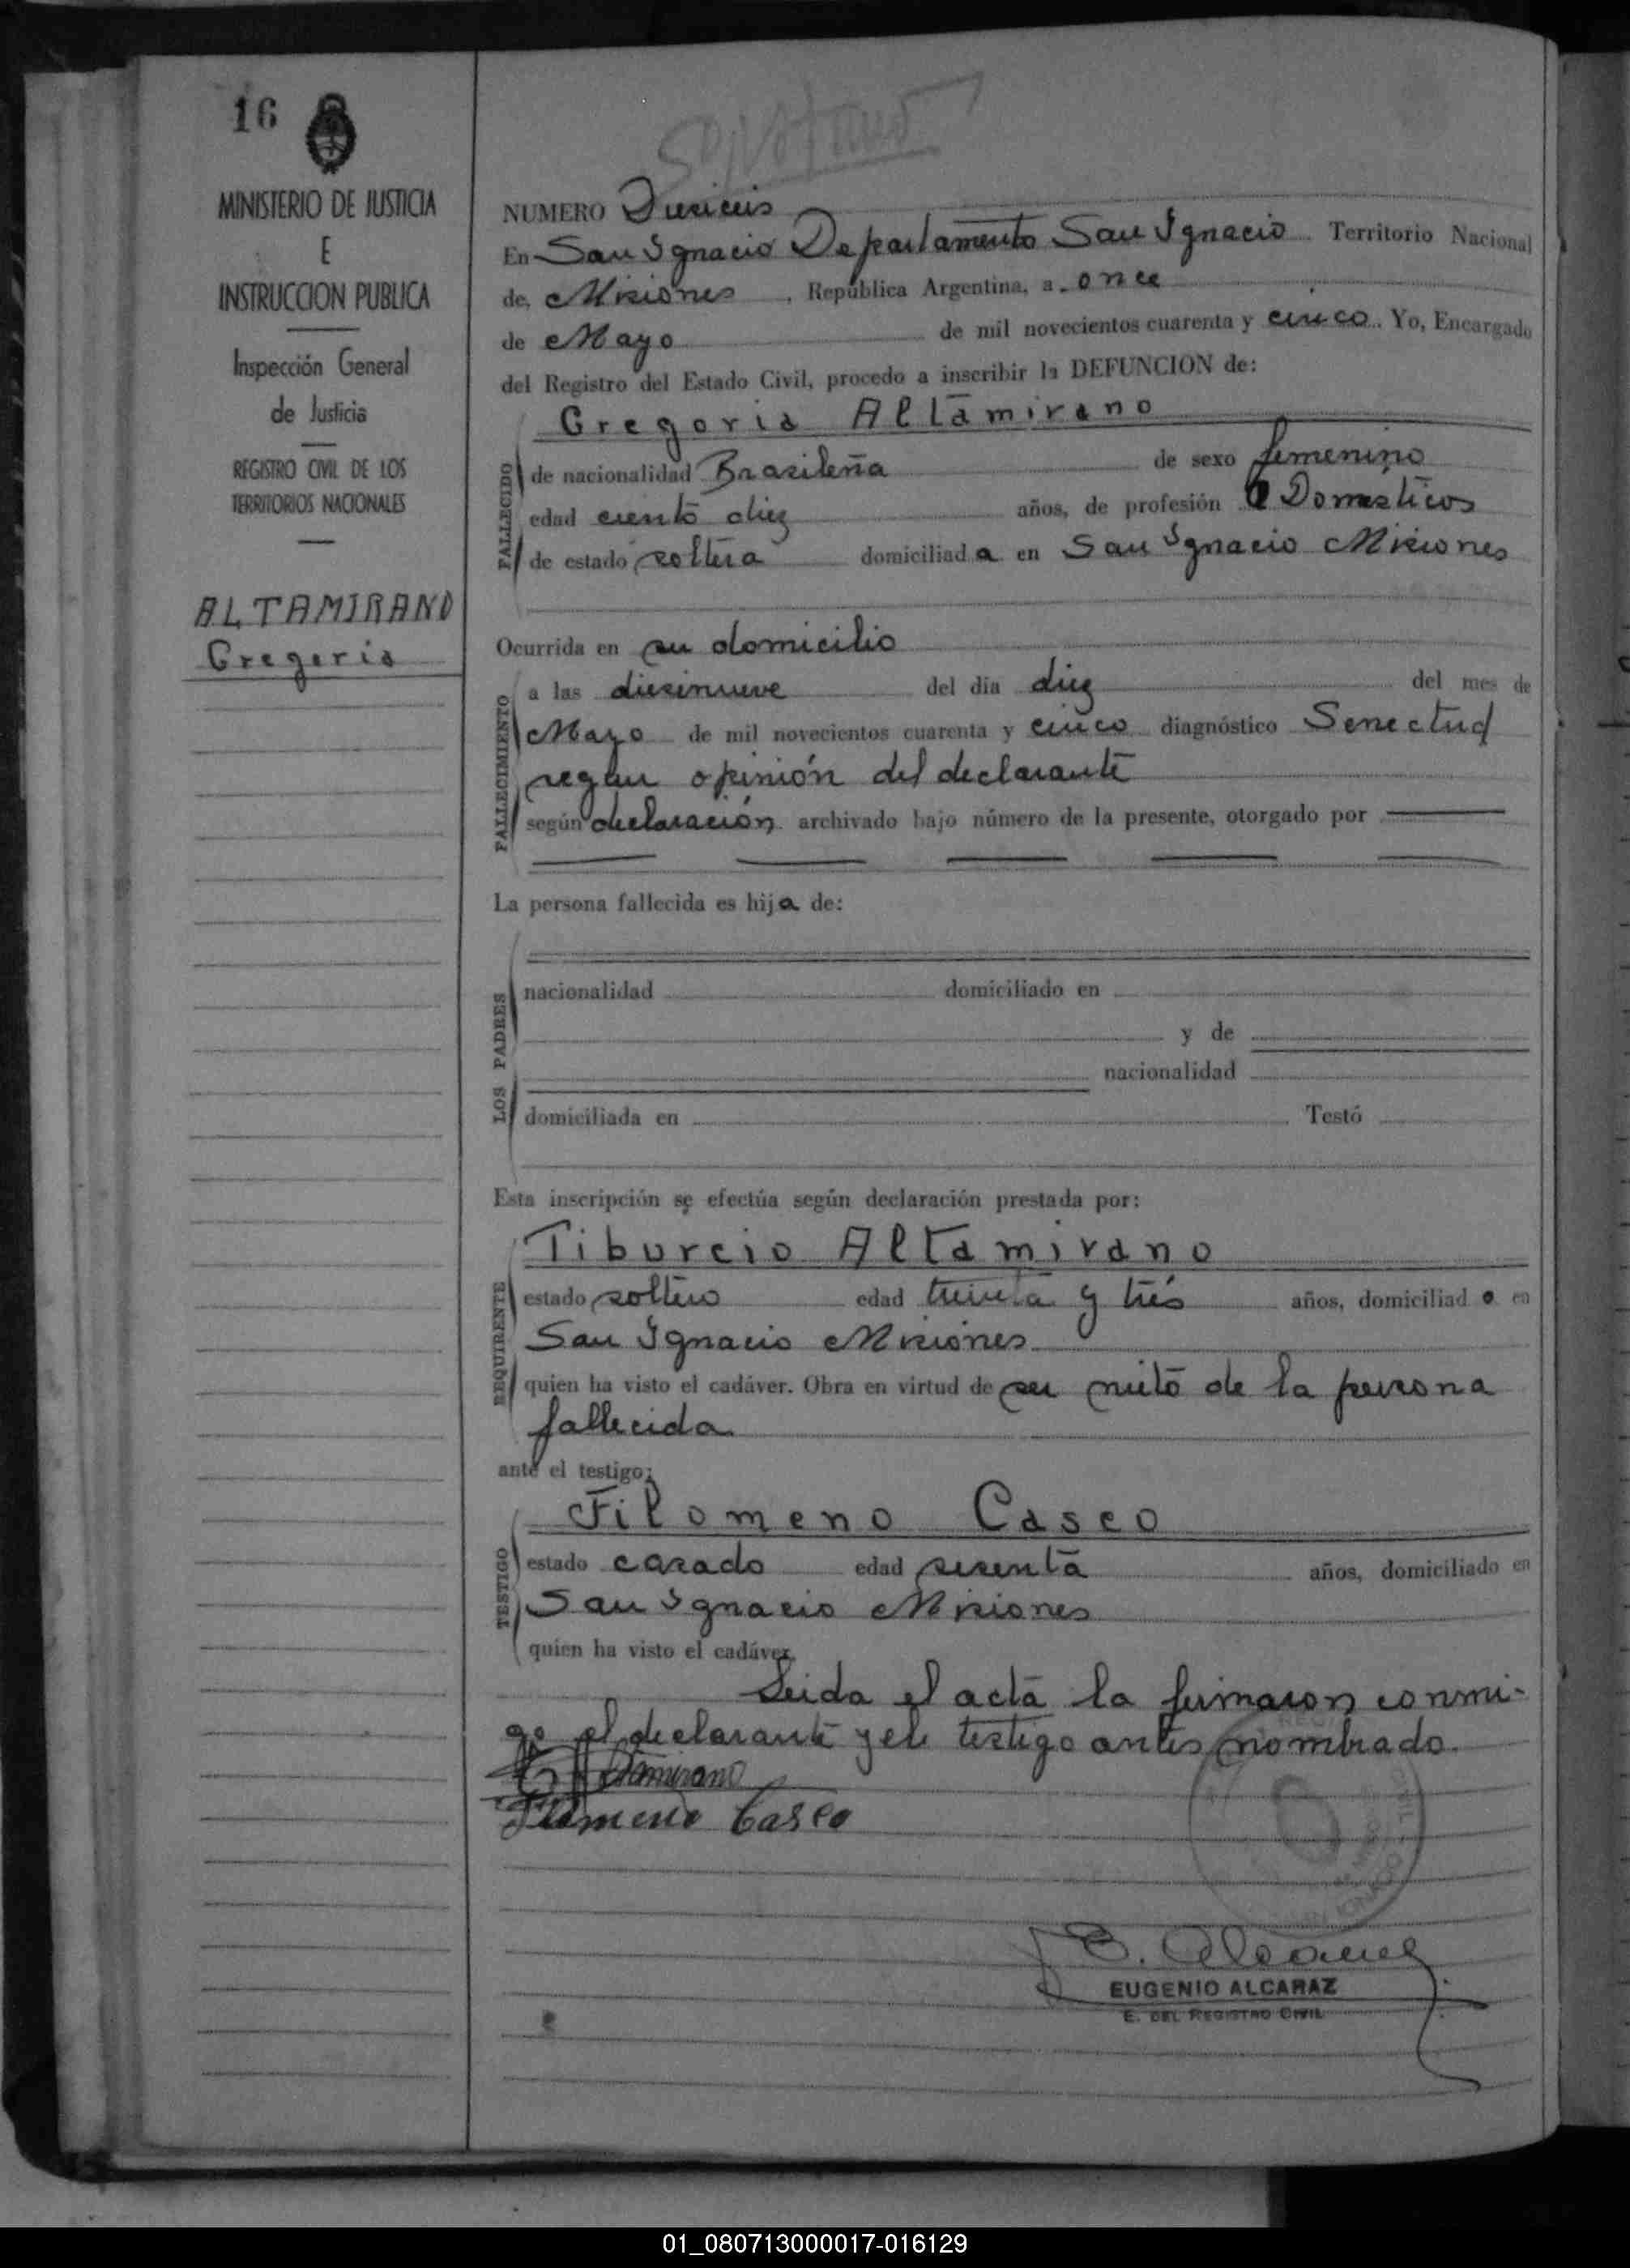 16
MINISTERIO DE JUSTICIA
E
INSTRUCCION PUBLICA
Inspección General
de Justicia
REGISTRO CIVIL DE LOS
TERRITORIOS NACIONALES
ALTAMIRANO
Gregoria
NUMERO Diesiseis
En San Ignacio Departamento San Ignacio Territorio Nacional
de, Misiones, República Argentina, a once
de Mayo de mil novecientos cuarenta y cinco. Yo, Encargado
del Registro del Estado Civil, procedo a inscribir la DEFUNCION de:
Gregoria Altamirano
FALLECIDO
de nacionalidad Brasileña de sexo femenino
edad ciento diez años, de profesión Q Domésticos
de estado soltera domiciliada en San Ignacio Misiones
Ocurrida en su domicilio
FALLECIMIENTO
a las diesinueve del día diez del mes de
Mayo de mil novecientos cuarenta y cinco diagnóstico Senectud
segun opinión del declarante
según declaración archivado bajo número de la presente, otorgado por
La persona fallecida es hija de:
LOS PADRES
nacionalidad domiciliado en
y de
nacionalidad
domiciliada en Testó
Esta inscripción se efectúa según declaración prestada por:
Tiburcio Altamirano
REQUIRENTE
estado soltero edad treinta y trés años, domiciliado en
San Ignacio Misiones
quien ha visto el cadáver. Obra en virtud de ser nieto de la persona
fallecida
ante el testigo:
Filomeno Casco
TESTIGO
estado casado edad sesenta años, domiciliado en
San Ignacio Misiones
quien ha visto el cadáver.
Leida el acta la firmaron conmi-
go el declarante y el testigo antes nombrado.
Altamirano
Filomeno Casco
E. Alcaraz
EUGENIO ALCARAZ
E. DEL REGISTRO CIVIL
01_080713000017-016129